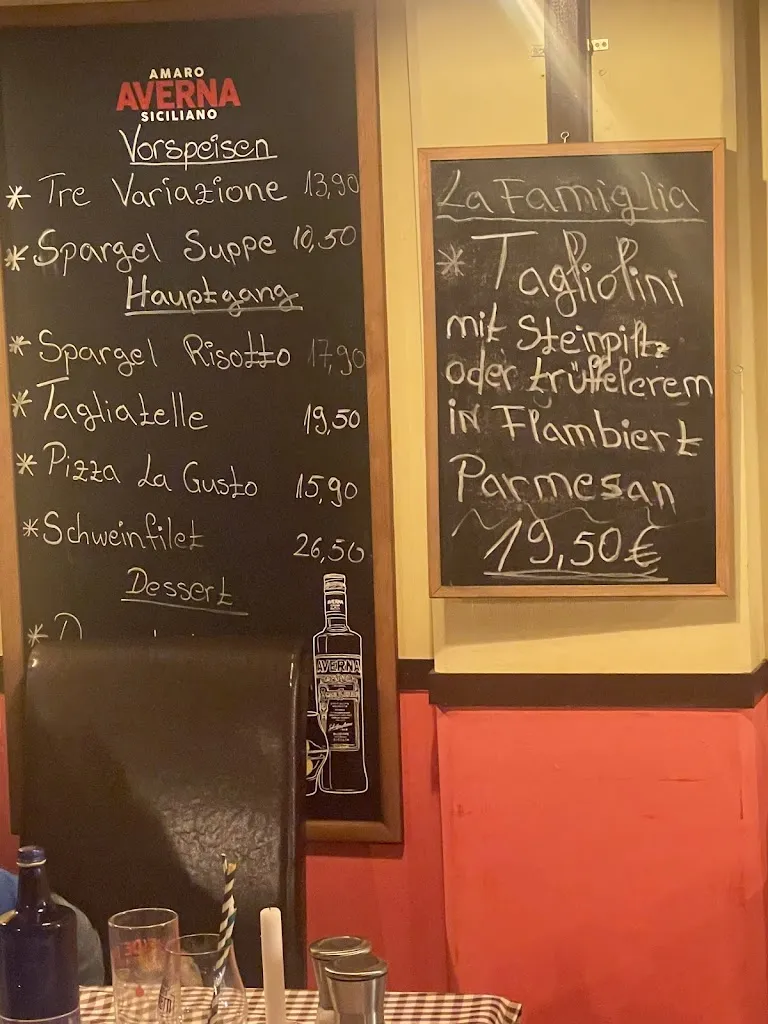 AMARO
AVERNA
SICILIANO
Vorspeisen
* Tre Variazione 13,90
* Spargel Suppe 10,50
Hauptgang
* Spargel Risotto 17,90
* Tagliatelle 19,50
* Pizza La Gusto 15,90
* Schweinfilet 26,50
Dessert
AVERNA
La Famiglia
* Tagliolini
mit Steinpiltz
oder trüffelcrem
in Flambiert
Parmesan
19,50€